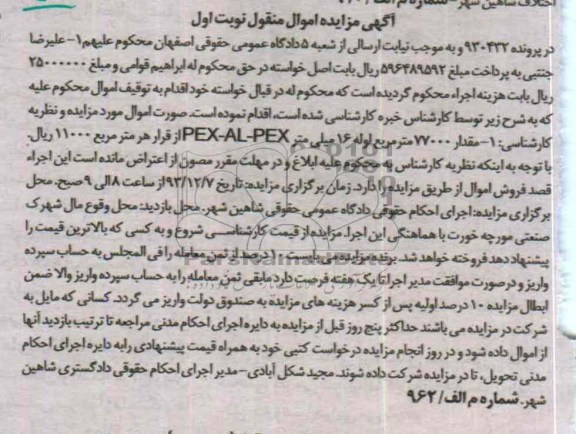 اختلاف شاهین شهر - شماره م الف/
آگهی مزایده اموال منقول نوبت اول
در پرونده ۹۳۰۴۳۲ و به موجب نیابت ارسالی از شعبه ۵ دادگاه عمومی حقوقی اصفهان محکوم علیهم ۱- علیرضا
جنتبی به پرداخت مبلغ ۵۹۶۴۸۹۵۹۲ ریال بابت اصل خواسته در حق محکوم له ابراهیم قوامی و مبلغ ۲۵۰۰۰۰۰۰
ریال بابت هزینه اجراء محکوم گردیده است که محکوم له در قبال خواسته خود اقدام به توقیف اموال محکوم علیه
که به شرح زیر توسط کارشناس خبره کارشناسی شده است، اقدام نموده است. صورت اموال مورد مزایده و نظریه
کارشناسی: ۱- مقدار ۷۷۰۰۰ مترمربع لوله ۱۶ میلی متر PEX-AL-PEX از قرار هر متر مربع ۱۱۰۰۰ ریال.
با توجه به اینکه نظریه کارشناس به محکوم علیه ابلاغ و در مهلت مقرر مصون از اعتراض مانده است این اجراء
قصد فروش اموال از طریق مزایده را دارد. زمان برگزاری مزایده: تاریخ ۹۳/۱۲/۷ از ساعت ۸ الی ۹ صبح. محل
برگزاری مزایده: اجرای احکام حقوقی دادگاه عمومی حقوقی شاهین شهر. محل بازدید: محل وقوع مال شهرک
صنعتی مورچه خورت با هماهنگی این اجرا. مزایده از قیمت کارشناسی شروع و به کسی که بالاترین قیمت را
پیشنهاد دهد فروخته خواهد شد. برنده مزایده می بایست ۱۰ درصد از ثمن معامله را فی المجلس به حساب سپرده
واریز و در صورت موافقت مدیر اجرا تا یک هفته فرصت دارد مابقی ثمن معامله را به حساب سپرده واریز والا ضمن
ابطال مزایده ۱۰ درصد اولیه پس از کسر هزینه های مزایده به صندوق دولت واریز می گردد. کسانی که مایل به
شرکت در مزایده می باشند حداکثر پنج روز قبل از مزایده به دایره اجرای احکام مدنی مراجعه تا ترتیب بازدید آنها
از اموال داده شود و در روز انجام مزایده درخواست کتبی خود به همراه قیمت پیشنهادی را به دایره اجرای احکام
مدنی تحویل، تا در مزایده شرکت داده شوند. مجید شکل آبادی - مدیر اجرای احکام حقوقی دادگستری شاهین
شهر. شماره م الف/ ۹۶۲